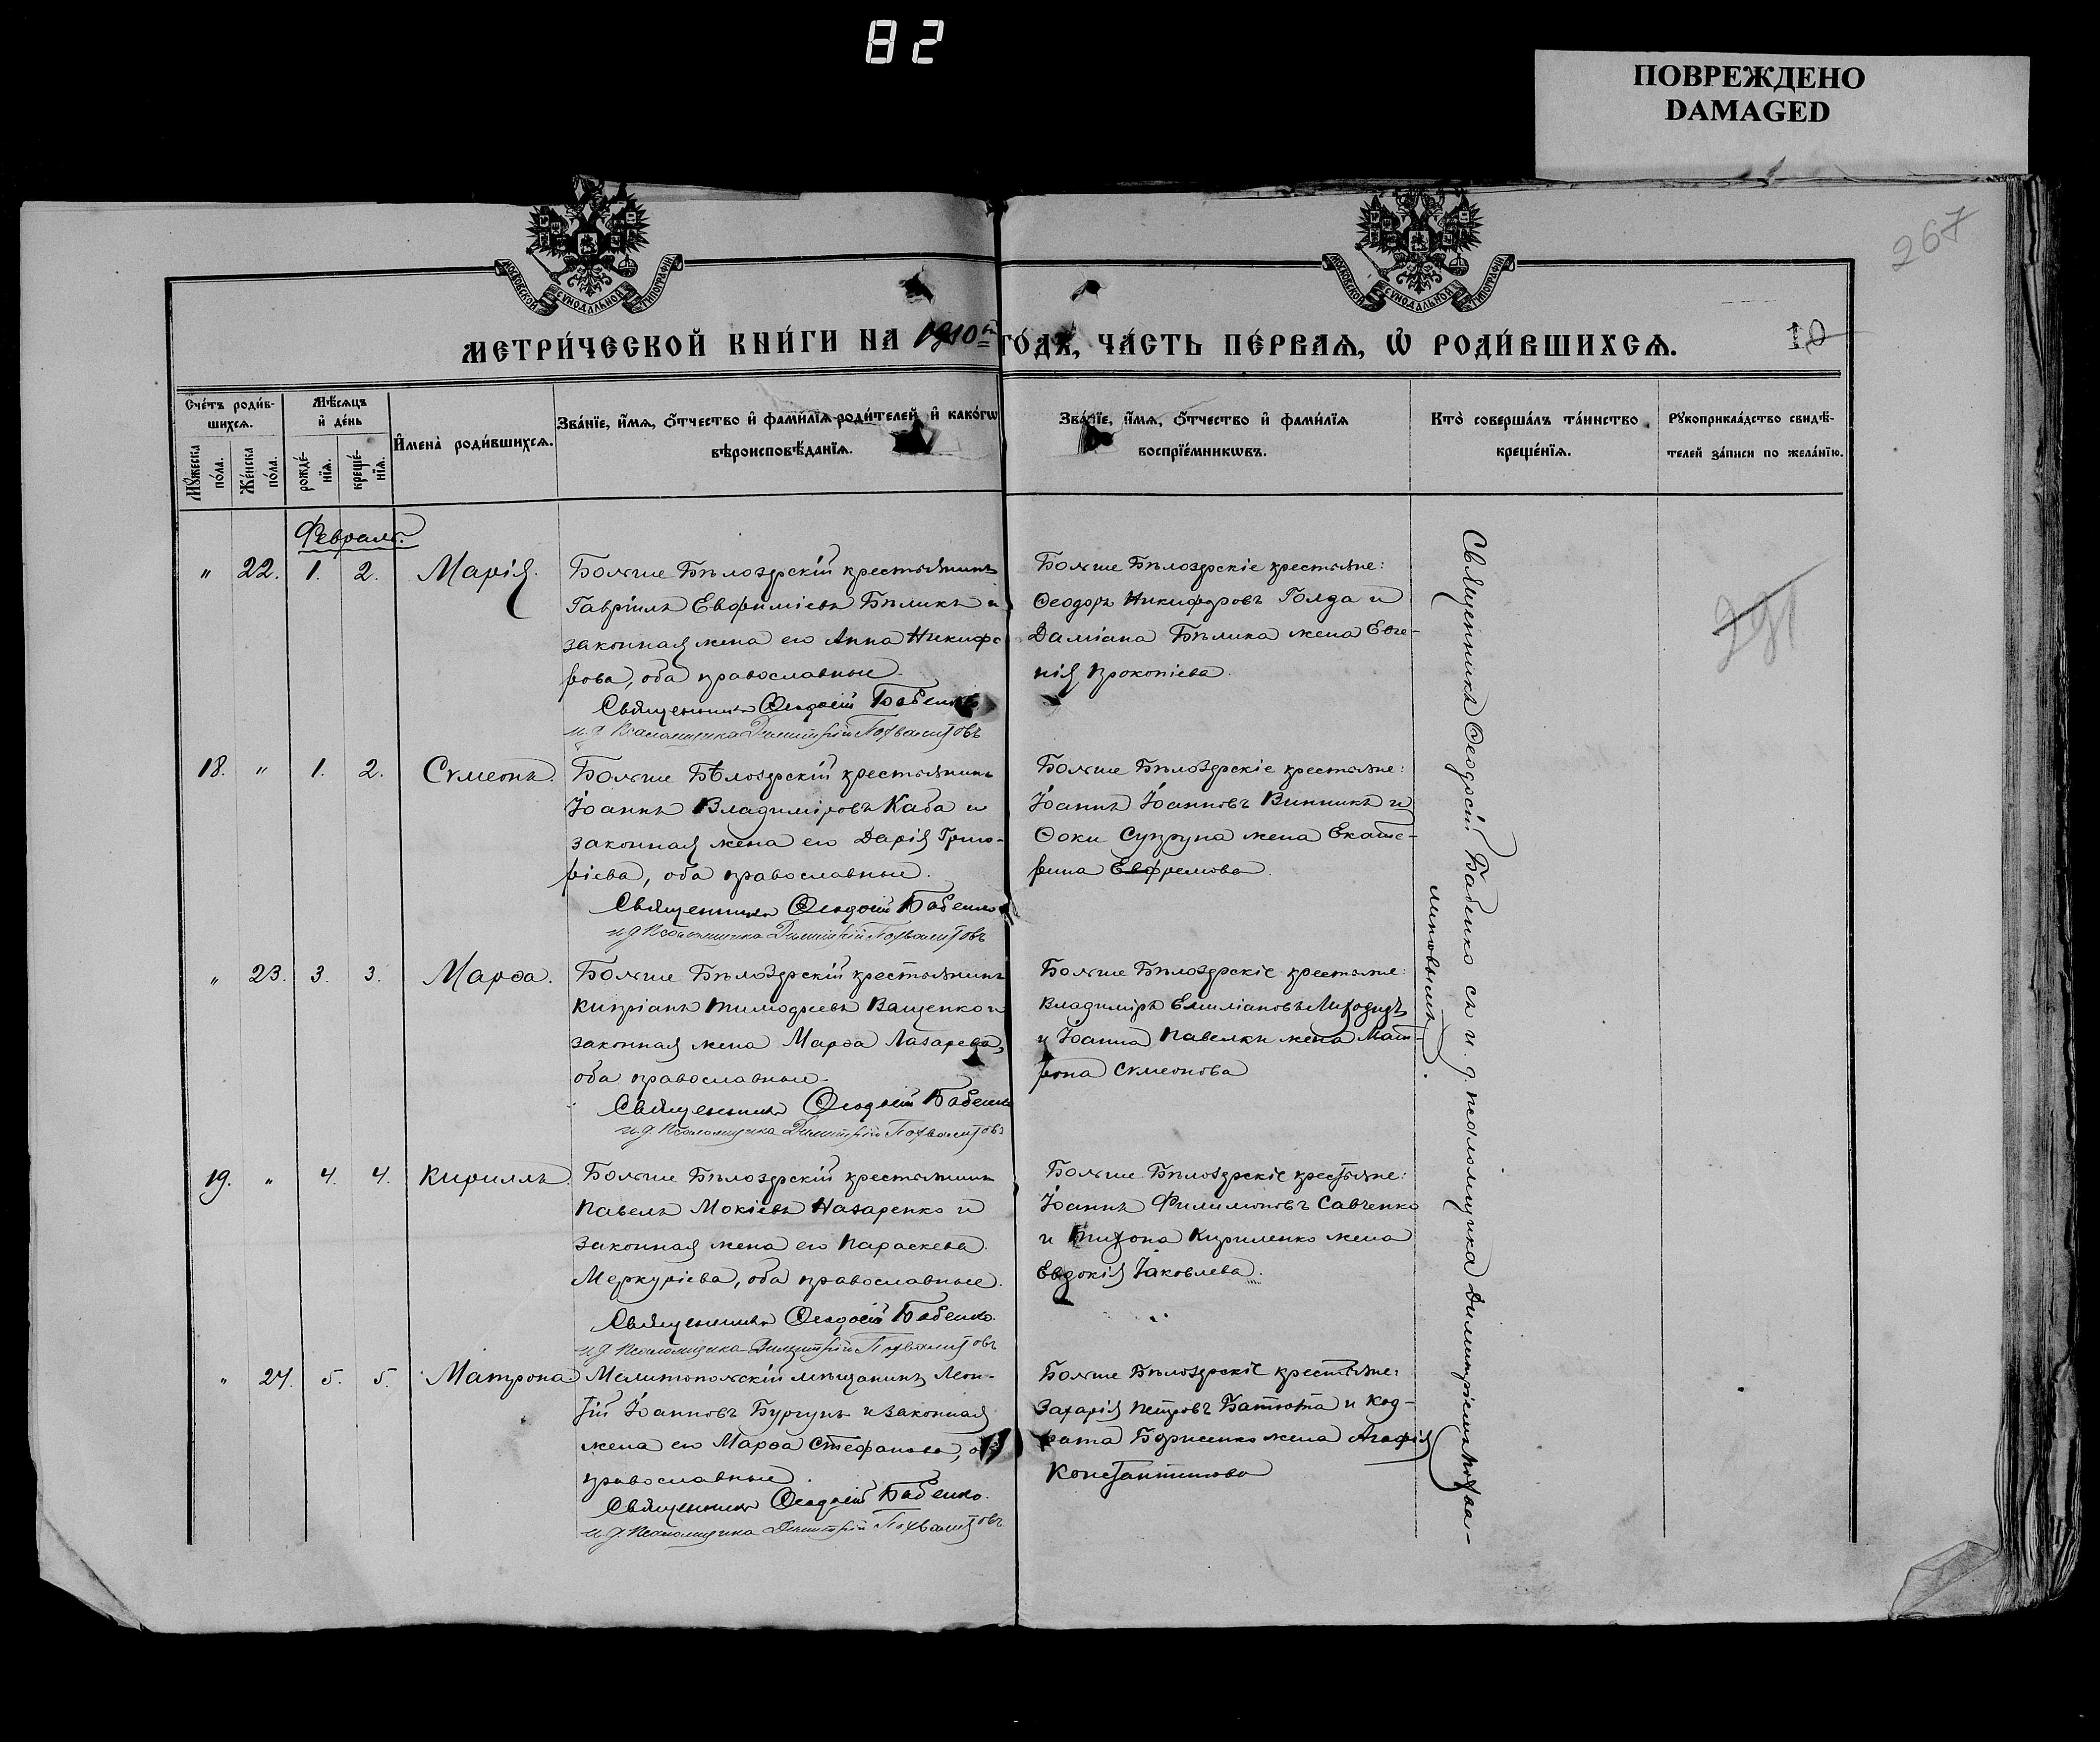 82
ПОВРЕЖДЕНО
DAMAGED
267
МОСКОВСКОЙ СѴНОДАЛЬНОЙ ТИПОГРАФІИ
МОСКОВСКОЙ СѴНОДАЛЬНОЙ ТИПОГРАФІИ
МЕТРИ́ЧЕСКОЙ КНИ́ГИ НА 1910й ГО́ДЪ, ЧА́СТЬ ПЕ́РВАѦ, Ѡ҆ РОДИ́ВШИХСѦ.
10
Сче́тъ роди́в-
шихсѧ.
Мꙋ́жеска по́ла.
Же́нска по́ла.
Мѣ́сѧцъ
и҆ де́нь
рожде́-
нїѧ.
креще́-
нїѧ.
И҆мена̀ роди́вшихсѧ.
Зва́нїе, и҆́мѧ, ѻ҆́тчество и҆ фами́лїѧ роди́телей и҆ како́гѡ
вѣроисповѣ́данїѧ.
Зва́нїе, и҆́мѧ, ѻ҆́тчество и҆ фами́лїѧ
воспрїе́мникѡвъ.
Кто̀ соверша́лъ та́инство
креще́нїѧ.
Рꙋкоприкла́дство свидѣ́-
телей за́писи по жела́нїю.
Февраль.
" 22. 1. 2. Марія.
Больше Бѣлозерскій крестьянинъ
Гавріилъ Евфиміевъ Бѣликъ и
законная жена его Анна Никифо
рова, оба православные.
Священникъ Ѳеодосій Бабенко
и д. Псаломщика Димитрій Похвалитовъ
Больше Бѣлозерскіе крестьяне:
Ѳеодоръ Никифоровъ Голда и
Даміана Бѣлика жена Евге-
нія Прокопіева.
291
18. " 1. 2. Сѵмеонъ.
Больше Бѣлозерскій крестьянинъ
Іоаннъ Владиміровъ Каба и
законная жена его Дарія Григо-
ріева, оба православные.
Священникъ Ѳеодосій Бабенко
и д Псаломщика Димитрій Похвалитовъ
Больше Бѣлозерскіе крестьяне:
Іоаннъ Іоанновъ Винникъ и
Ѳоки Супруна жена Екате-
рина Евфремова.
" 23. 3. 3. Марѳа.
Больше Бѣлозерскій крестьянинъ
Кипріанъ Тимофеевъ Ващенко и
законная жена Марѳа Лазарева,
оба православные.
Священникъ Ѳеодосій Бабенко
и д. Псаломщика Димитрій Похвалитовъ
Больше Бѣлозерскіе крестьяне:
Владиміръ Емиліановъ
и Іоанна Павелки жена Мат-
рона Сѵмеонова
19. " 4. 4. Кириллъ.
Больше Бѣлозерскій крестьянинъ
Павелъ Мокіевъ Назаренко и
законная жена его Параскева
Меркуріева, оба православные.
Священникъ Ѳеодосій Бабенко.
и д Псаломщика Димитрій Похвалитовъ
Больше Бѣлозерскіе крестьяне:
Іоаннъ Филимоновъ Савченко
и Тихона Кириленко жена
Евдокія Іаковлева.
" 24. 5. 5. Матрона
Мелитопольскій мѣщанинъ Леон-
тій Іоанновъ Бургунъ и законная
жена его Марѳа Стефанова, оба
православные.
Священникъ Ѳеодосій Бабенко.
и д. Псаломщика Димитрій Похвалитовъ
Больше Бѣлозерскіе крестьяне:
Захарія Петровъ Батюта и Код-
рата Борисенко жена Агафія
Константинова
Священникъ Ѳеодосій Бабенко съ и. д. псаломщика Димитріемъ Похва-
литовымъ.